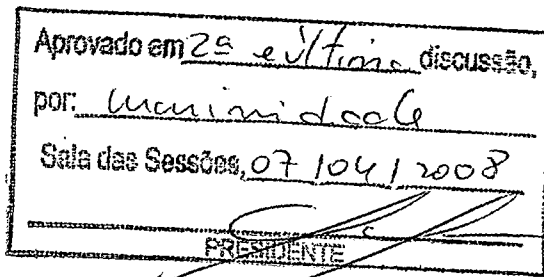 Aprovado em 2ª e última discussão,
por: unanimidade
Sala das Sessões, 07/04/2008
PRESIDENTE